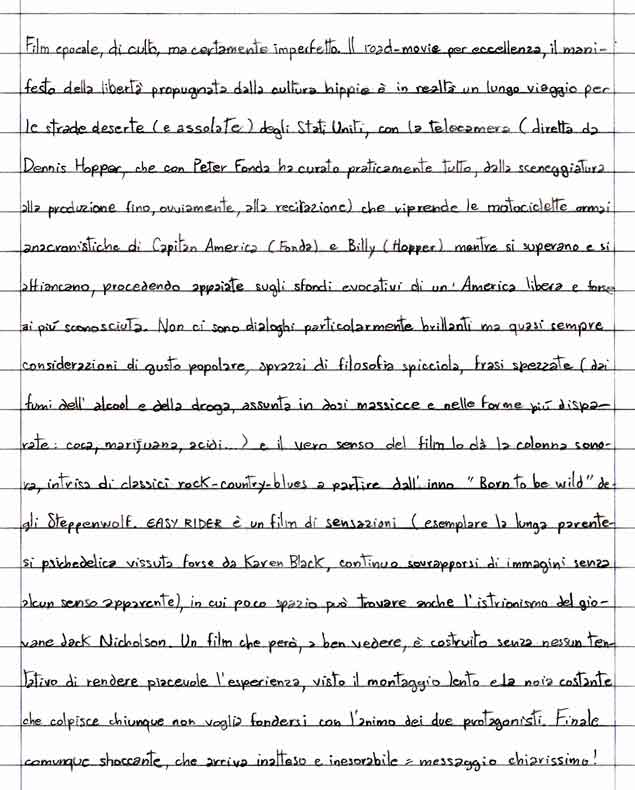 Film epocale, di culto, ma certamente imperfetto. Il road-movie per eccellenza, il mani-
festo della libertà propugnata dalla cultura hippie è in realtà un lungo viaggio per
le strade deserte (e assolate) degli Stati Uniti, con la telecamera (diretta da
Dennis Hopper, che con Peter Fonda ha curato praticamente tutto, dalla sceneggiatura
alla produzione fino, ovviamente, alla recitazione) che riprende le motociclette ormai
anacronistiche di Capitan America (Fonda) e Billy (Hopper) mentre si superano e si
affiancano, procedendo appaiate sugli sfondi evocativi di un'America libera e forse
ai più sconosciuta. Non ci sono dialoghi particolarmente brillanti ma quasi sempre
considerazioni di gusto popolare, sprazzi di filosofia spicciola, frasi spezzate (dai
fumi dell'alcool e della droga, assunta in dosi massicce e nelle forme più dispa-
rate: coca, marijuana, acidi...) e il vero senso del film lo dà la colonna sono-
ra, intrisa di classici rock-country-blues a partire dall'inno "Born to be wild" de-
gli Steppenwolf. EASY RIDER è un film di sensazioni (esemplare la lunga parente-
si psichedelica vissuta forse da Karen Black, continuo sovrapporsi di immagini senza
alcun senso apparente), in cui poco spazio può trovare anche l'istrionismo del gio-
vane Jack Nicholson. Un film che però, a ben vedere, è costruito senza nessun ten-
tativo di rendere piacevole l'esperienza, visto il montaggio lento e la noia costante
che colpisce chiunque non voglia fondersi con l'animo dei due protagonisti. Finale
comunque shoccante, che arriva inatteso e inesorabile = messaggio chiarissimo!